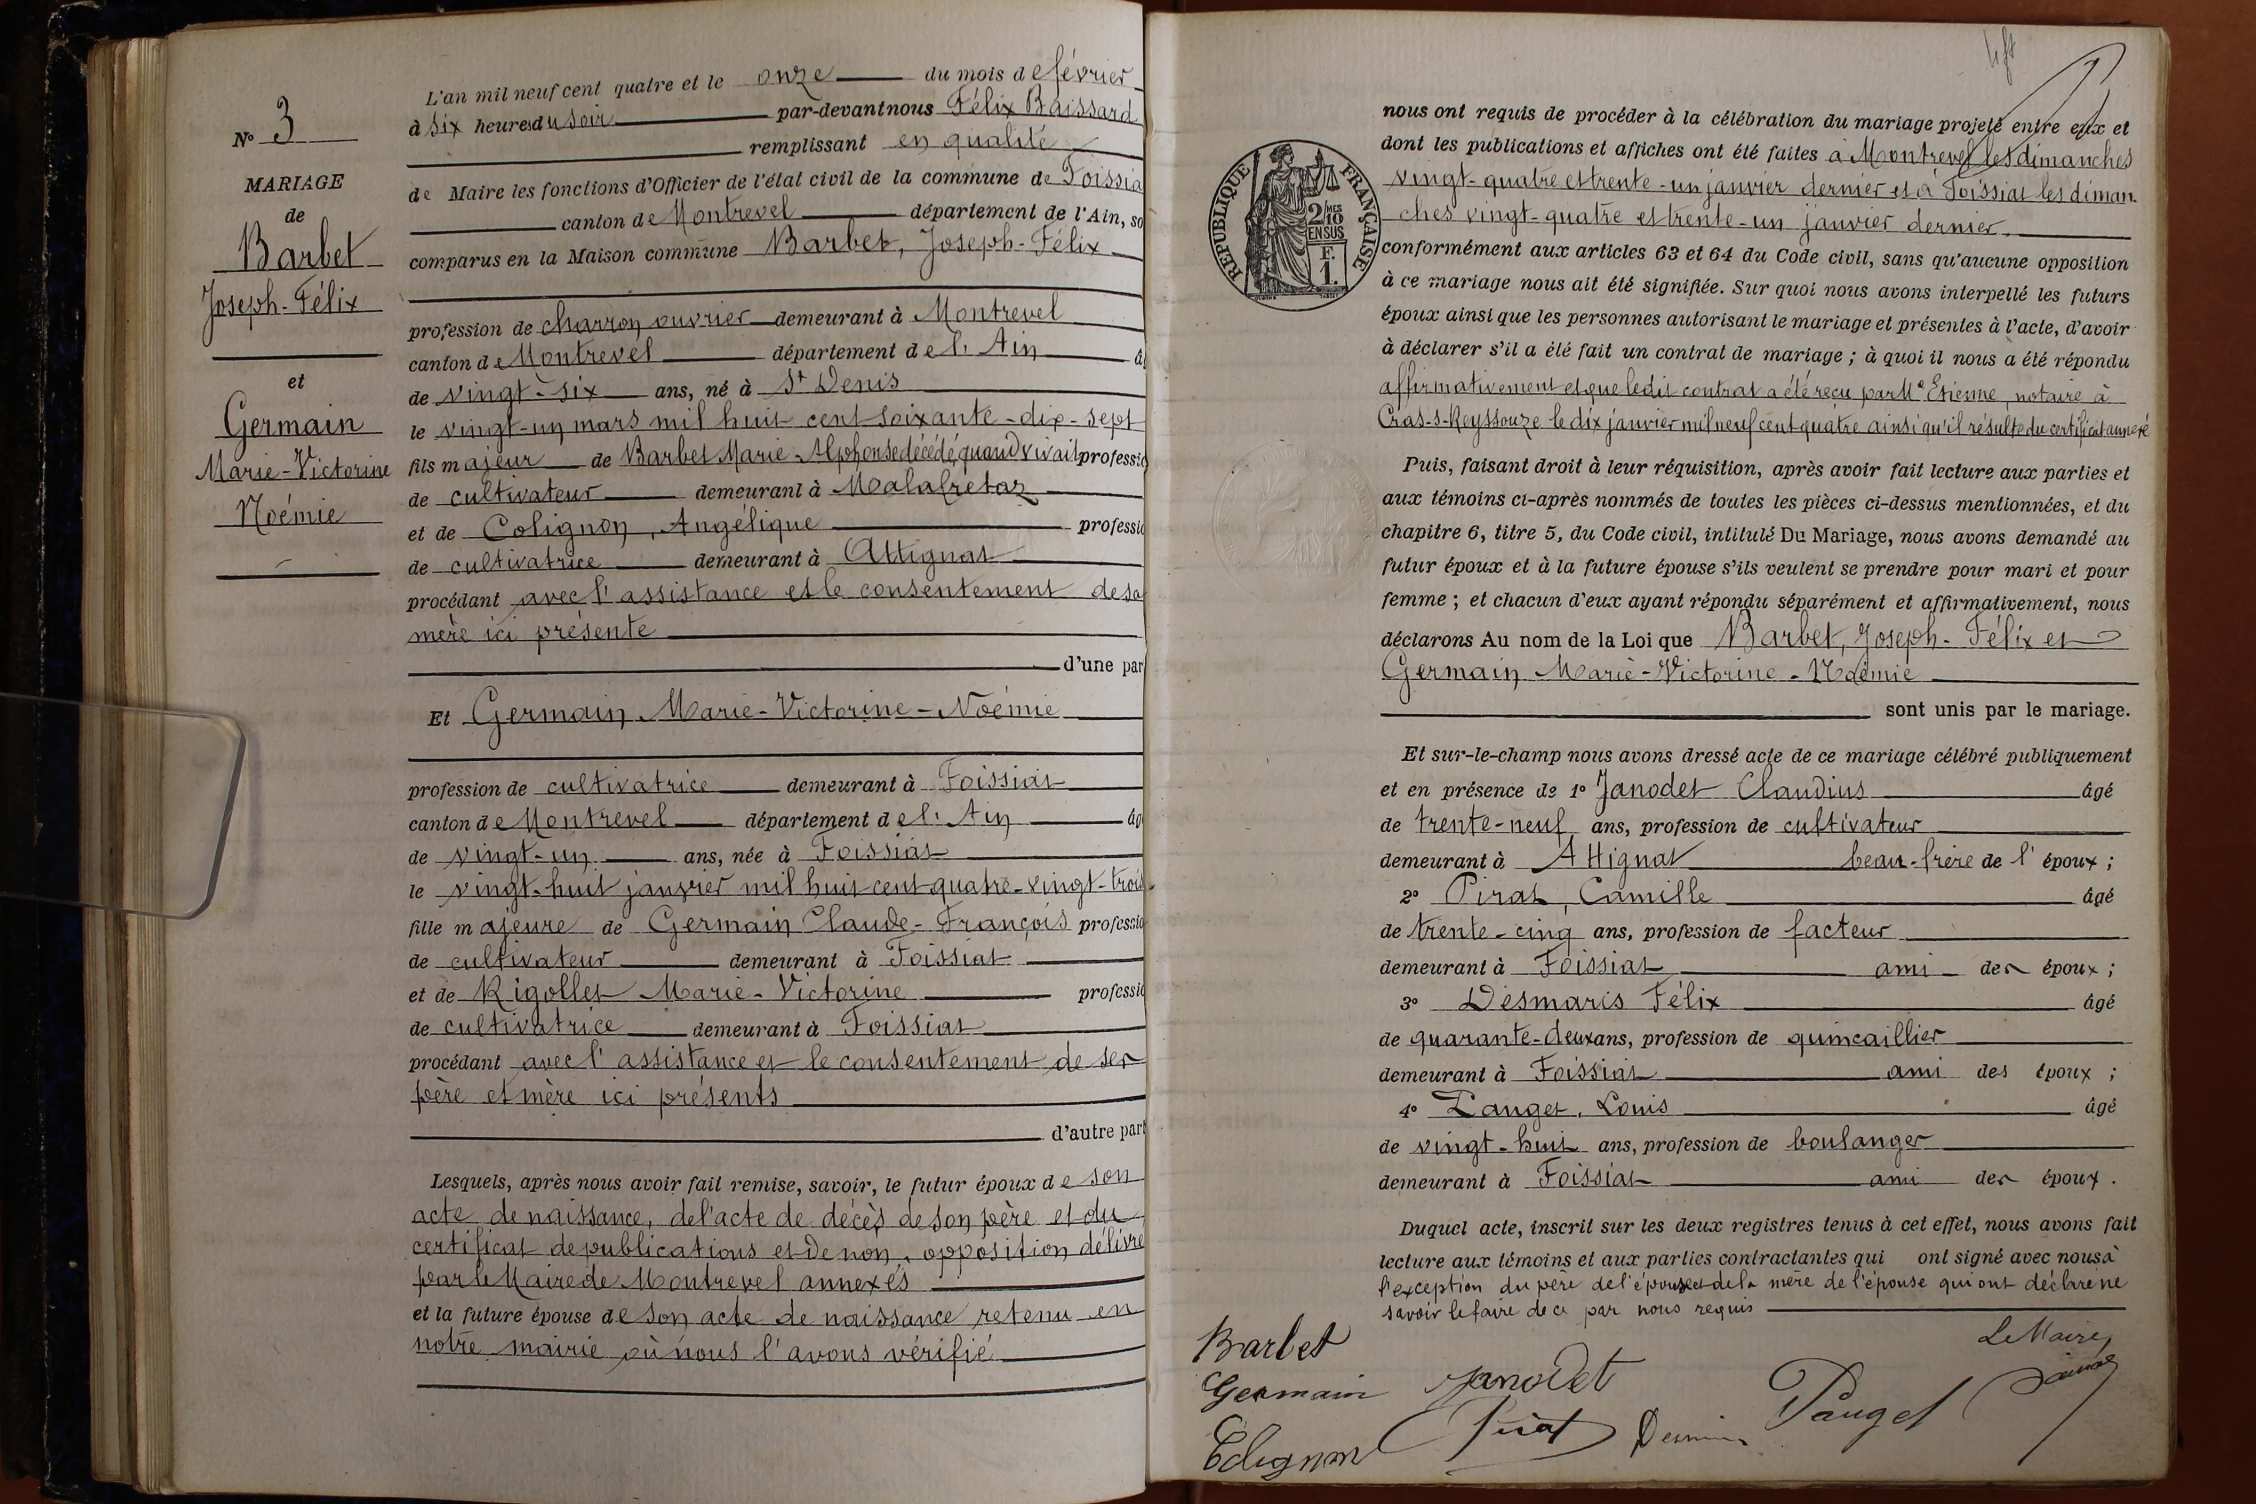 N° 3
MARIAGE
de
Barbet
Joseph-Félix
et
Germain
Marie-Victorine
Noémie
L'an mil neuf cent quatre et le onze du mois de février
à six heures du soir par-devant nous Félix Baissard
remplissant en qualité
de Maire les fonctions d'Officier de l'état civil de la commune de Foissia
canton de Montrevel département de l'Ain, so
comparus en la Maison commune Barbet, Joseph-Félix
profession de charron ouvrier demeurant à Montrevel
canton de Montrevel département de l'Ain â
de vingt-six ans, né à St Denis
le vingt-un mars mil huit cent soixante-dix-sept
fils majeur de Barbet Marie-Alphonse décédé, quand vivait professio
de cultivateur demeurant à Malafretaz
et de Colignon, Angélique professio
de cultivatrice demeurant à Attignat
procédant avec l'assistance et le consentement de sa
mère ici présente
d'une par
Et Germain Marie-Victorine-Noémie
profession de cultivatrice demeurant à Foissiat
canton de Montrevel département de l'Ain âg
de vingt-un ans, née à Foissiat
le vingt-huit janvier mil huit cent quatre-vingt-trois
fille majeure de Germain Claude-François professio
de cultivateur demeurant à Foissiat
et de Rigollet Marie-Victorine professio
de cultivatrice demeurant à Foissiat
procédant avec l'assistance et le consentement de ses
père et mère ici présents
d'autre part
Lesquels, après nous avoir fait remise, savoir, le futur époux de son
acte de naissance, de l'acte de décès de son père et du
certificat de publications et de non-opposition délivré
par le Maire de Montrevel annexés
et la future épouse de son acte de naissance retenu en
notre mairie où nous l'avons vérifié
nous ont requis de procéder à la célébration du mariage projeté entre eux et
dont les publications et affiches ont été faites à Montrevel les dimanches
vingt-quatre et trente-un janvier dernier et à Foissiat les diman
ches vingt-quatre et trente-un janvier dernier.
RÉPUBLIQUE FRANÇAISE
2/MES
10
EN SUS
F.
1.
conformément aux articles 63 et 64 du Code civil, sans qu'aucune opposition
à ce mariage nous ait été signifiée. Sur quoi nous avons interpellé les futurs
époux ainsi que les personnes autorisant le mariage et présentes à l'acte, d'avoir
à déclarer s'il a été fait un contrat de mariage ; à quoi il nous a été répondu
affirmativement et que ledit contrat a été reçu par Me Etienne, notaire à
Cras-s-Reyssouze le dix janvier mil neuf cent quatre ainsi qu'il résulte du certificat annexé
Puis, faisant droit à leur réquisition, après avoir fait lecture aux parties et
aux témoins ci-après nommés de toutes les pièces ci-dessus mentionnées, et du
chapitre 6, titre 5, du Code civil, intitulé Du Mariage, nous avons demandé au
futur époux et à la future épouse s'ils veulent se prendre pour mari et pour
femme ; et chacun d'eux ayant répondu séparément et affirmativement, nous
déclarons Au nom de la Loi que Barbet, Joseph-Félix et
Germain Marie-Victorine-Noémie
sont unis par le mariage.
Et sur-le-champ nous avons dressé acte de ce mariage célébré publiquement
et en présence de 1° Janodet Claudius âgé
de trente-neuf ans, profession de cultivateur
demeurant à Attignat beau-frère de l'époux ;
2° Pirat, Camille âgé
de trente-cinq ans, profession de facteur
demeurant à Foissiat ami des époux ;
3° Désmaris Félix âgé
de quarante-deux ans, profession de quincaillier
demeurant à Foissiat ami des époux ;
4° Pauget, Louis âgé
de vingt-huit ans, profession de boulanger
demeurant à Foissiat ami des époux.
Duquel acte, inscrit sur les deux registres tenus à cet effet, nous avons fait
lecture aux témoins et aux parties contractantes qui ont signé avec nous à
l'exception du père de l'épouse et de la mère de l'épouse qui ont déclaré ne
savoir le faire de ce par nous requis
Le Maire,
Barbet
Germain
Janodet
Pirat
Pauget